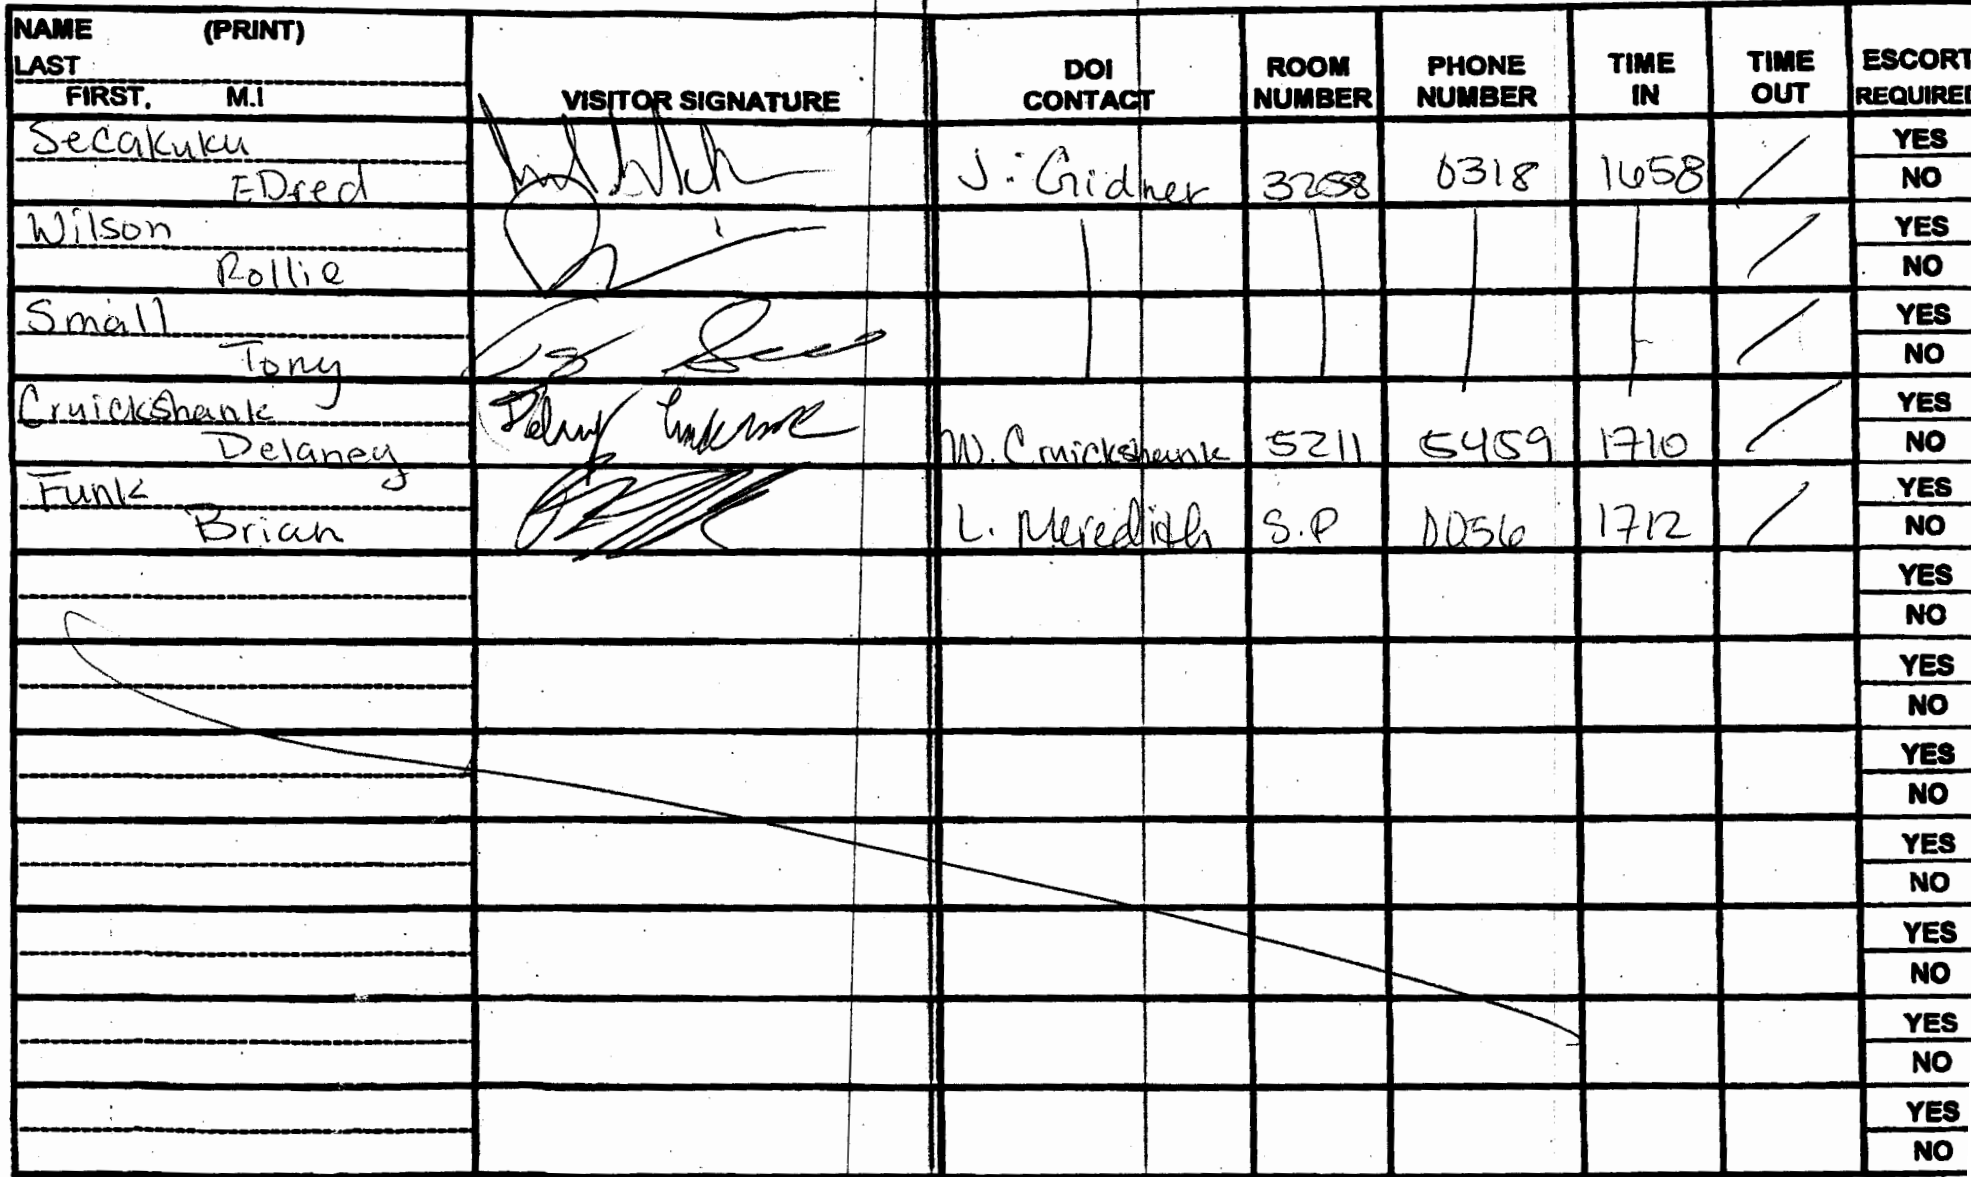 NAME (PRINT)
LAST
FIRST, M.I
VISITOR SIGNATURE
DOI CONTACT
ROOM NUMBER
PHONE NUMBER
TIME IN
TIME OUT
ESCORT REQUIRED
Secakuku
EDred J. Gidner 3258 0318 1658 /
YES
NO
Wilson
Rollie /
YES
NO
Small
Tony /
YES
NO
Cruickshank
Delaney W. Cruickshank 5211 5459 1710 /
YES
NO
Funk
Brian L. Meredith S.P 1712 /
YES
NO
YES
NO
YES
NO
YES
NO
YES
NO
YES
NO
YES
NO
YES
NO